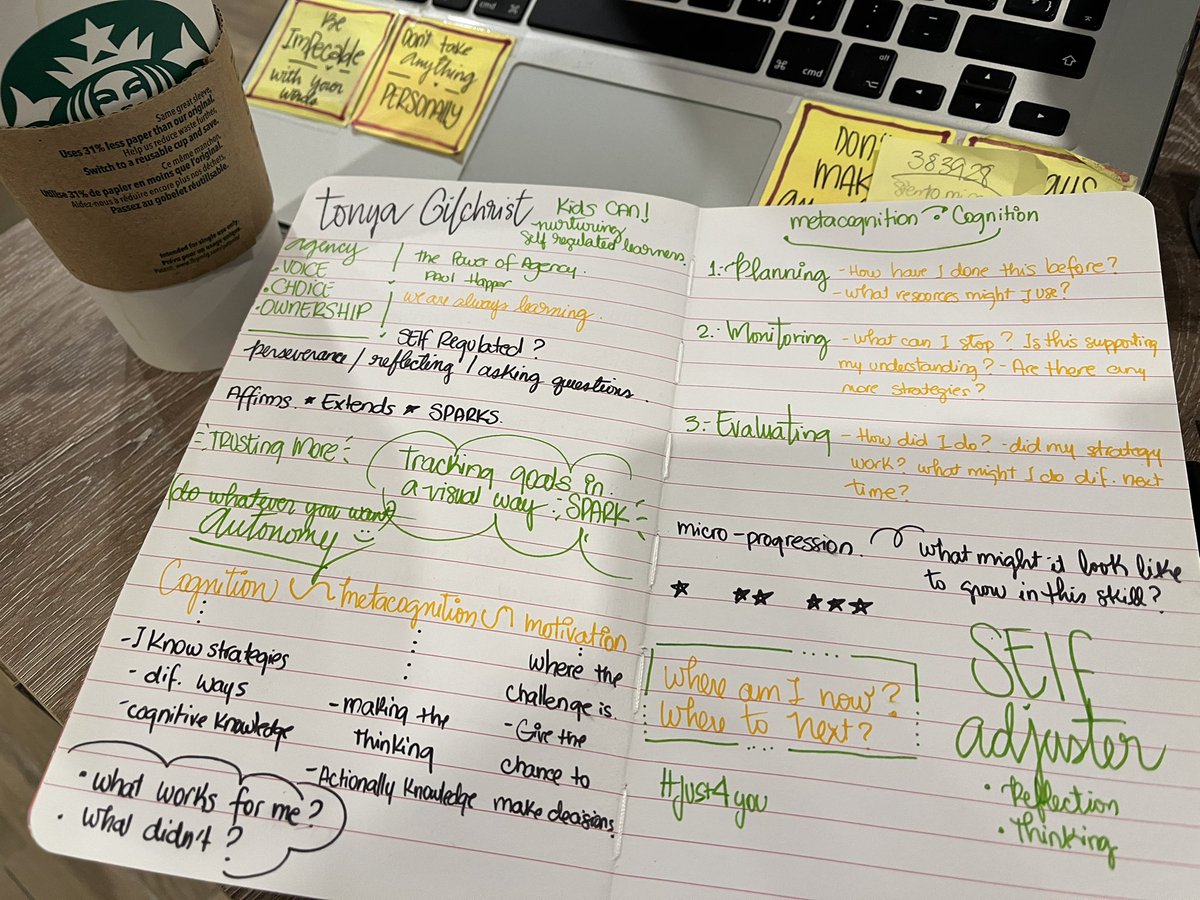 Same great sleeve,
Uses 31% less paper than our original.
Help us reduce waste further,
Switch to a reusable cup and save.
Ce même manchon,
Utilise 31% de papier en moins que l'original.
Aidez-nous à réduire encore plus nos déchets,
Passez au gobelet réutilisable.
Intended for single use only.
BE
ImPecable
with your
words
Don't take
anything
PERSONALLY
cmd
⌘
cmd
alt
⌥
DON'
MAK
383928
tonya Gilchrist
Kids CAN!
nurturing
self regulated learners.
agency
. VOICE
. CHOICE
. OWNERSHIP
the Power of Agency.
Paol Happer
we are always learning.
SELF Regulated?
perseverance / reflecting / asking questions.
Affirms * Extends * SPARKS.
TRUSTING MORE
tracking goals in
a visual way SPARK
do whatever you want
autonomy
Cognition metacognition motivation
- I Know strategies
- dif. ways
- cognitive knowledge
- making the
thinking
- Actionally Knowledge
where the
challenge is.
- Give the
chance to
make decisions.
• what works for me?
• what didn't?
metacognition Cognition
1.- Planning - How have I done this before?
- what resources might I use?
2.- Monitoring - what can I stop? Is this supporting
my understanding? - Are there any
more strategies?
3.- Evaluating - How did I do? - did my strategy
work? what might I do dif. next
time?
micro-progression. what might it look like
to grow in this skill?
★ ★★ ★★★
where am I now?
where to next?
#Just4you
SElf
adjuster
• Reflection
• thinking